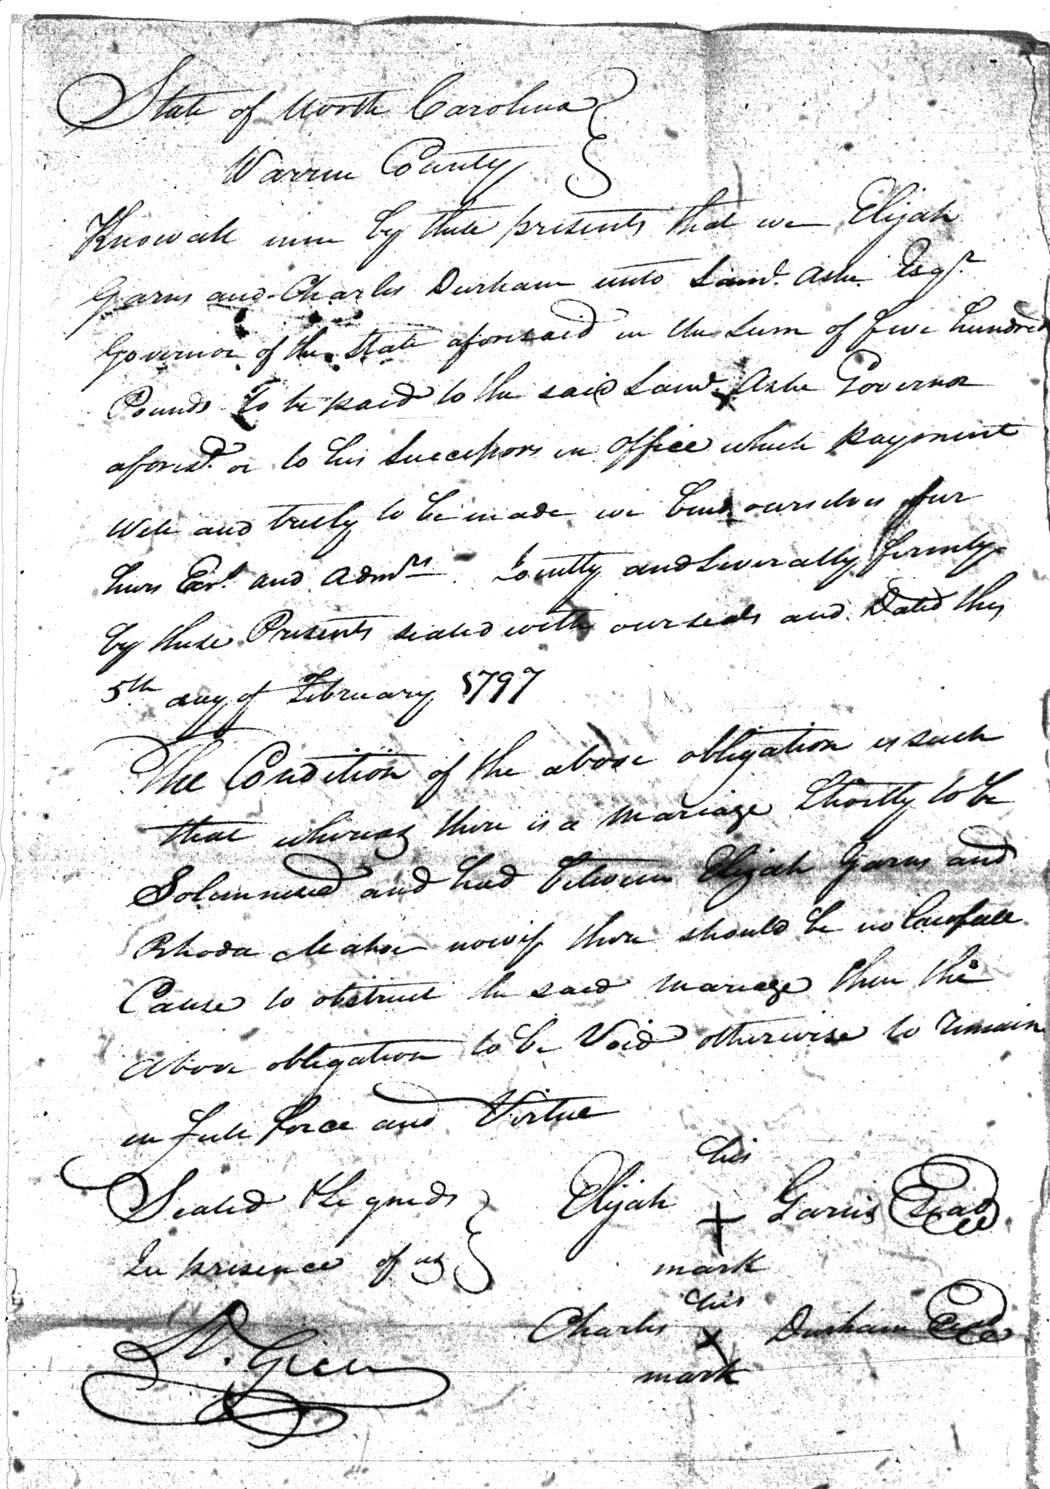 State of North Carolina
Warren County
Know all men by these presents that we Elijah
Garns and Charles Durham unto Saml. Ashe Esqr.
Governor of the State aforesaid in the Sum of five hundred
Pounds To be paid to the said Saml. Ashe Governor
aforesd. or to his Successors in Office which Payment
Well and truly to be made we bind ourselves our
heirs Exrs. and Admrs. Jointly and Severally firmly
by these Presents sealed with our seals and Dated this
5th day of February 1797
The Condition of the above obligation is such
that whereas there is a mariage Shortly to be
Solemnised and had between Elijah Garns and
Rhoda now if there should be no lawfull
Cause to obstruct the said mariage then the
above obligation to be Void otherwise to remain
in full force and Virtue
his
Sealed & Signed Elijah + Garns Seal
In presence of us mark
his
Charles x Durham Seal
Green mark